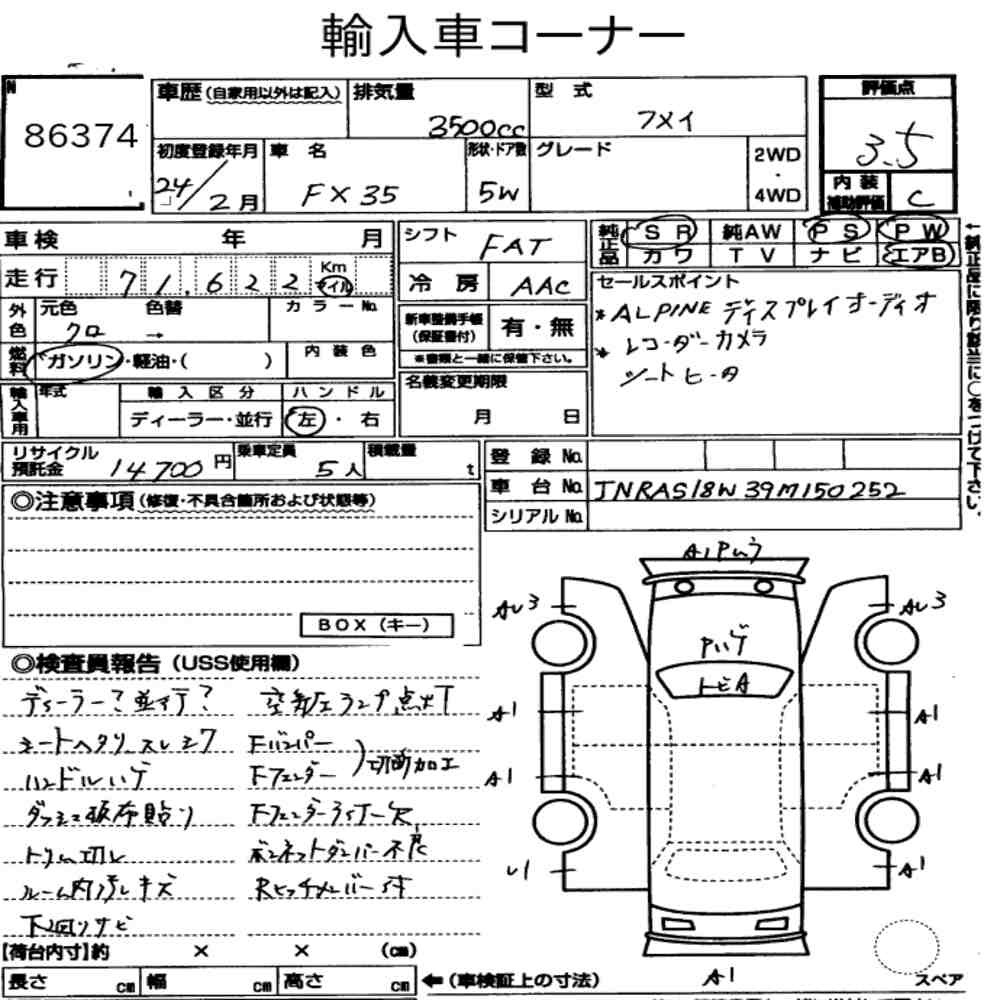 輸入車コーナー
N
86374
車歴（自家用以外は記入）
排気量
3500cc
型 式
フメイ
評価点
3.5
初度登録年月
24/2月
車 名
FX35
形状・ドア数
5W
グレード
2WD
・
4WD
内装
補助評価
C
車検 年 月
走行 71.622 Km マイル
外色
元色
クロ
色替
→
カラーNo.
燃料
ガソリン・軽油・( )
内装色
輸入車用
年式
輸入区分
ディーラー・並行
ハンドル
左・右
シフト
FAT
冷房
AAC
新車整備手帳
（保証書付）
有・無
※書類と一緒に保管下さい。
名義変更期限
月 日
純正品
SR 純AW PS PW
カワ TV ナビ エアB
セールスポイント
*ALPINE ディスプレイオーディオ
* レコーダーカメラ
シートヒータ
↑純正品に限り該当に○をつけて下さい。
リサイクル
預託金
14,700円
乗車定員
5人
積載量
t
登録No.
車台No. JNRAS18W39M150252
シリアルNo.
◎注意事項（修復・不具合箇所および状態等）
BOX（キー）
◎検査員報告（USS使用欄）
ディーラー？並行？
シートヘタリ、スレ、シワ
ハンドルハゲ
ダッシュ板布貼り
トリム切レ
ルーム内汚レキズ
下回りサビ
空気圧ランプ点灯
Fバンパー
Fフェンダー ）切断加工
Fフェンダーライナー欠
ボンネットダンパー不良
Rヒッチメンバー付
A1Pムラ
AU3
AU3
Pハゲ
トビA
A1
A1
A1
A1
U1
A1
A1
スペア
【荷台内寸】約 × × （cm）
長さ cm 幅 cm 高さ cm
←（車検証上の寸法）